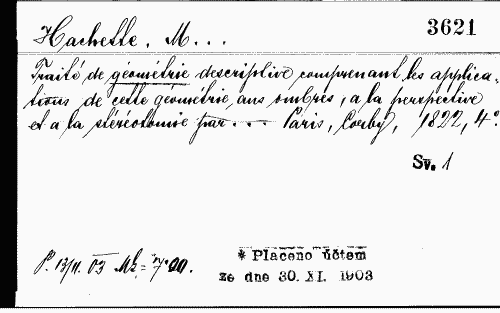 3621
Hachette, M...
Traité de géométrie descriptive comprenant les applica-
tions de cette géométrie aus ombres, a la perspective
et a la stéréotomie par... — Paris, Corby, 1822, 4°.
Sv. 1
13/11. 03
* Placeno účtem
ze dne 30. XI. 1903